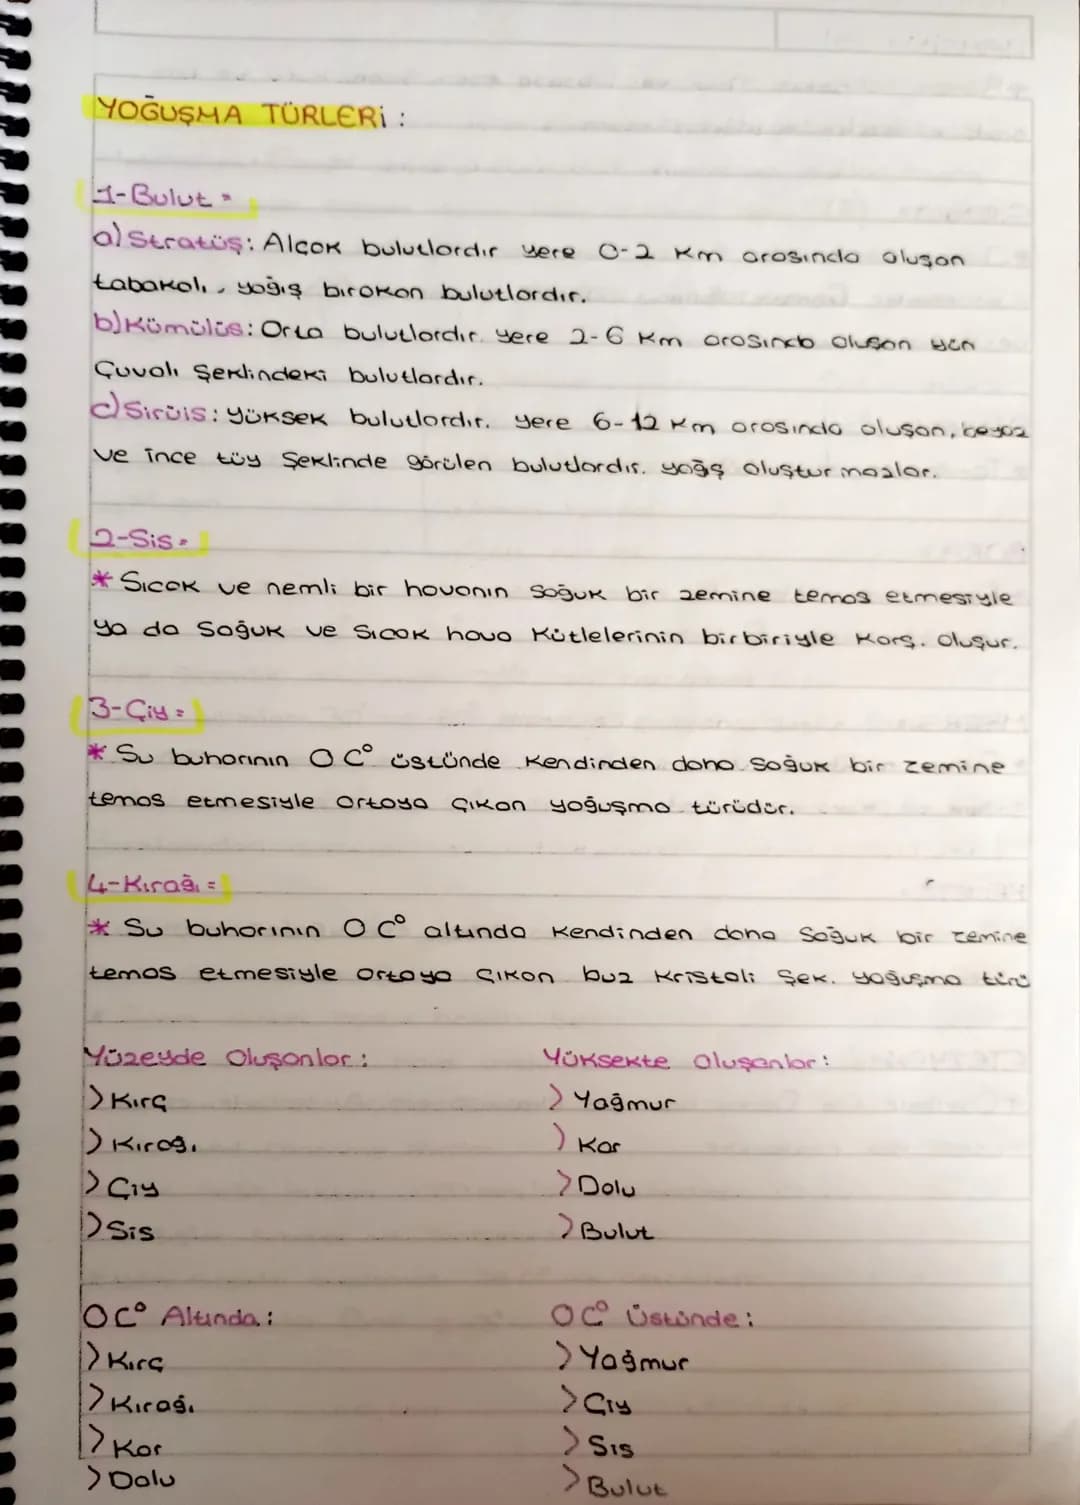 YOĞUŞMA TÜRLERİ :
1-Bulut =
a) Stratüş: Alçak bulutlardır yere 0-2 km arasında oluşan
tabakalı, yağış bırakan bulutlardır.
b) Kümülüs: Orta bulutlardır. yere 2-6 km arasında oluşan yün
Çuvalı Şeklindeki bulutlardır.
c) Sirüis: Yüksek bulutlardır. yere 6-12 km arasında oluşan, beyaz
ve ince tüy Şeklinde görülen bulutlardır. yağş oluşturmazlar.
2-Sis=
* Sıcak ve nemli bir havanın Soğuk bir zemine temas etmesiyle
ya da Soğuk ve Sıcak hava Kütlelerinin birbiriyle Karş. Oluşur.
3-Çiy=
* Su buharının 0 C° üstünde Kendinden daha Soğuk bir zemine
temas etmesiyle ortaya çıkan yoğuşma türüdür.
4-Kırağı=
* Su buharının 0 C° altında Kendinden daha Soğuk bir zemine
temas etmesiyle ortaya çıkan buz Kristali Şek. yoğuşma türü
Yüzeyde Oluşanlar: Yüksekte Oluşanlar:
> Kırç > Yağmur
> Kırağı > Kar
> Çiy > Dolu
> Sis > Bulut
0 C° Altında: 0 C° Üstünde:
> Kırç > Yağmur
> Kırağı > Çiy
> Kar > Sis
> Dolu > Bulut